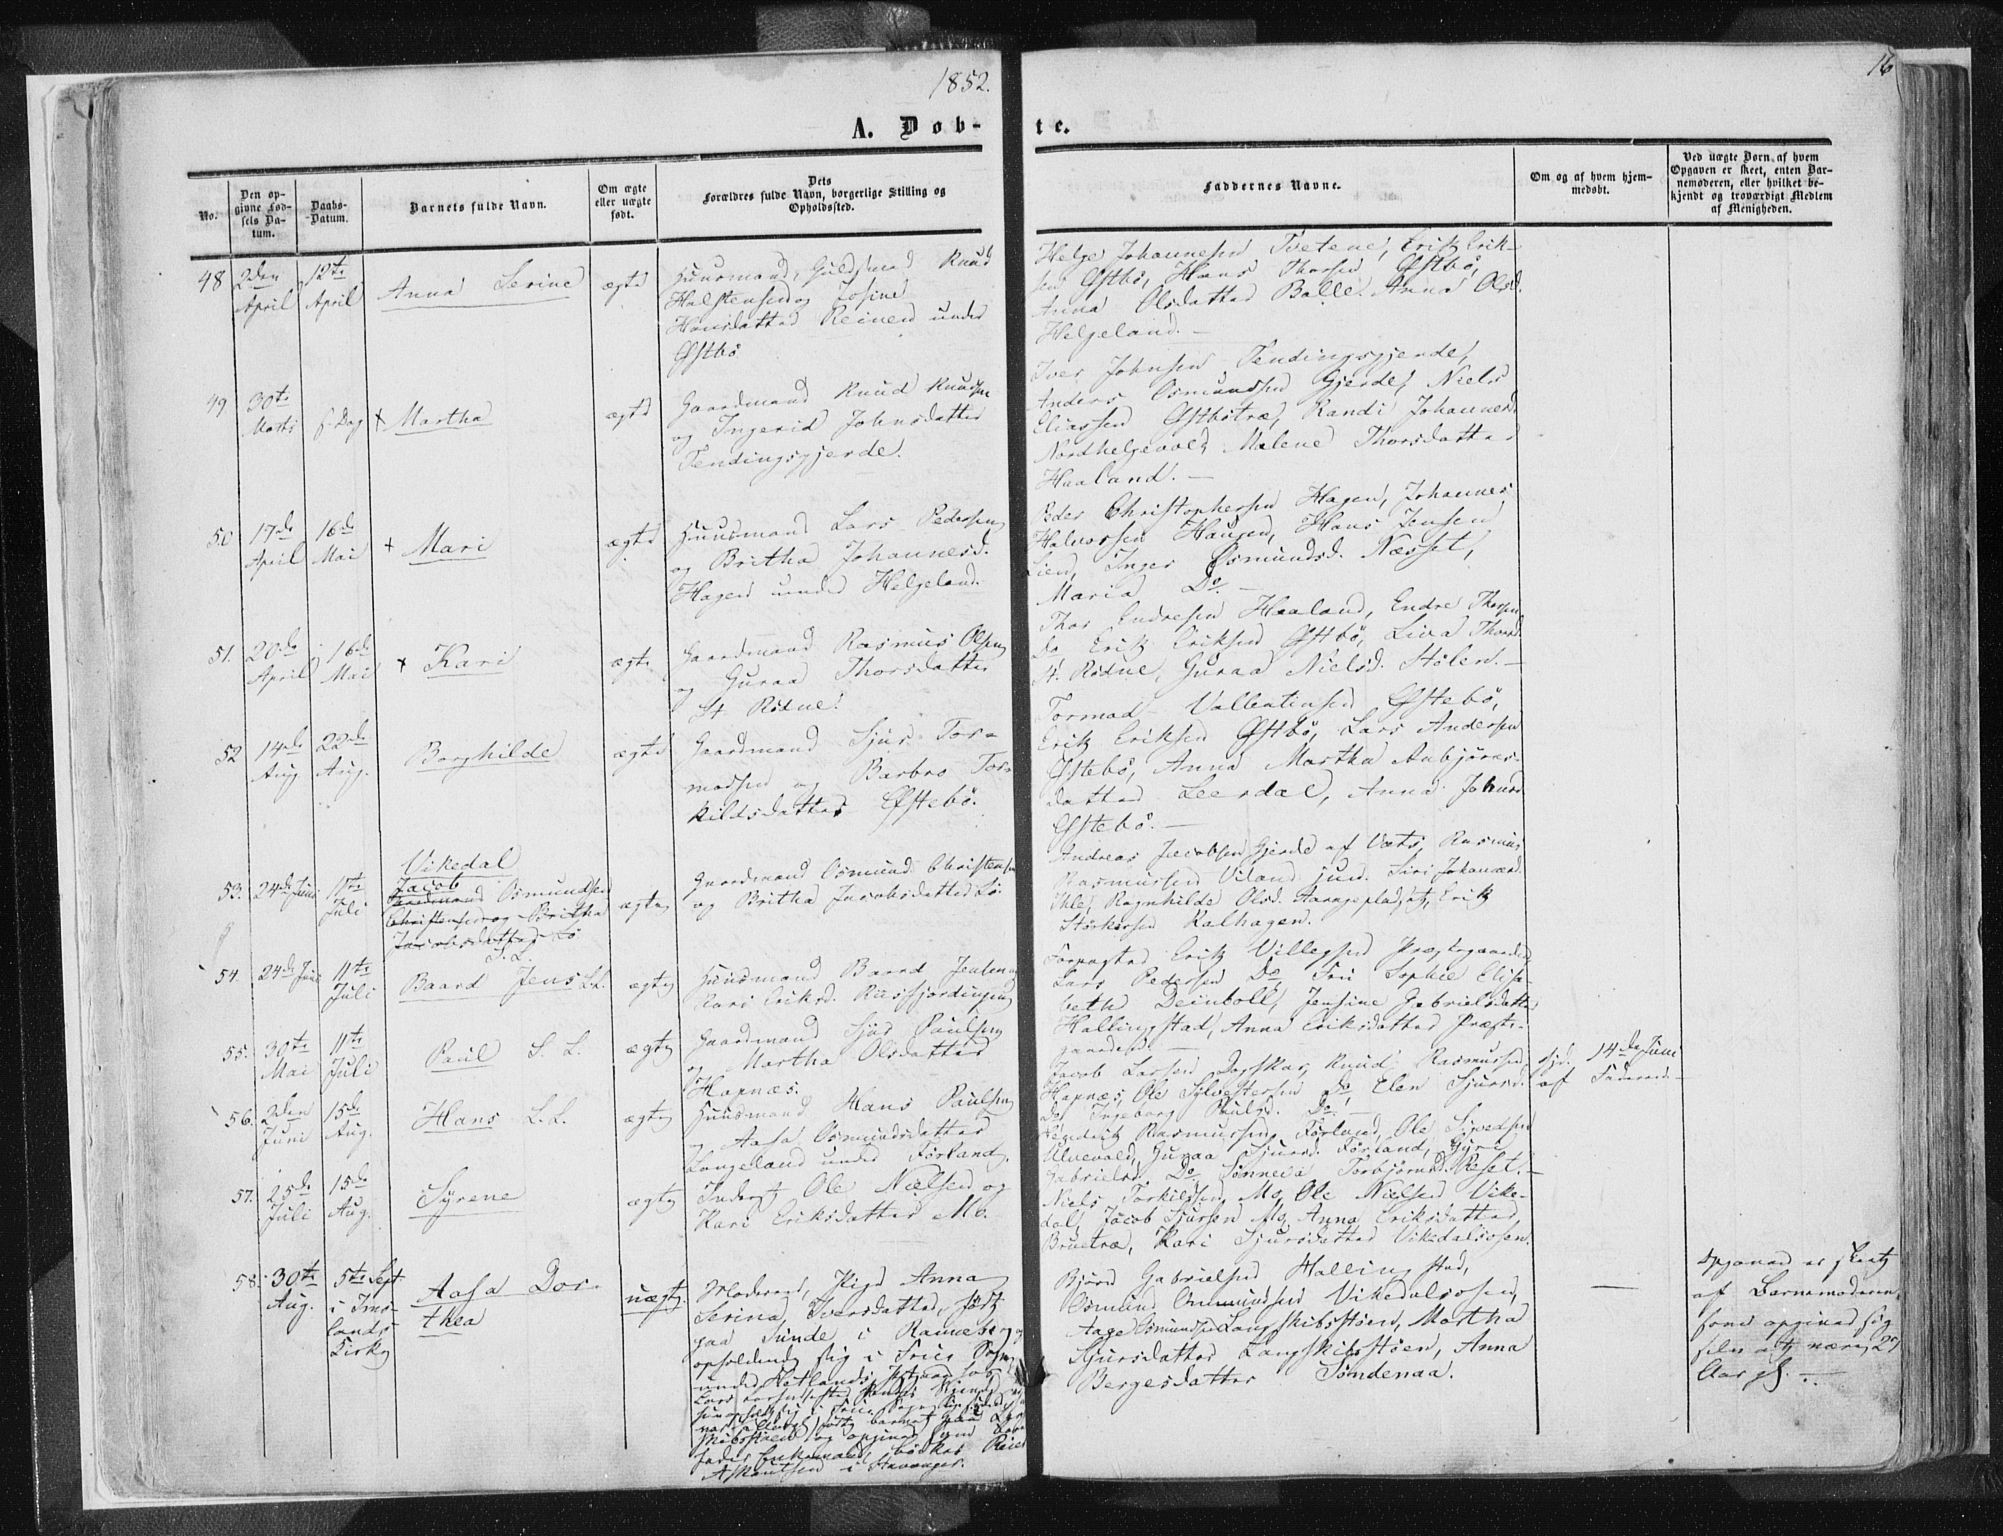 1852.
16
A. Døb-
te.
No.
Den op-
givne Fød-
sels Da-
tum.
Daabs-
Datum.
Barnets fulde Navn.
Om ægte
eller uægte
født.
Dets
Forældres fulde Navn, borgerlige Stilling og
Opholdssted.
Faddernes Navne.
Om og af hvem hjem-
medøbt.
Ved uægte Børn, af hvem
Opgaven er skeet, enten Bar-
nemoderen, eller hvilket be-
kjendt og troværdigt Medlem
af Menigheden.
48 2den April
12te April
Anna Serine
ægte
Huusmand, Guldsmed Knud
Halstensen og Josine
Hansdatter Reinen under
Østbø
Helge Johannesen Tvetene, Erik Erik-
sen Østbø, Hans Thorsen Østbø,
Anna Olsdatter Balle. Anna Olsd.
Helgeland. —
49 30te Marts
s. Dag
+ Martha
ægte
Gaardmand Knud Knudsen
og Ingerid Johnsdatter
Tendingsgjerde.
Iver Johnsen Tendingsgjerde,
Anders Osmundsen Gjerde, Niels
Eliassen Østbøtræ, Randi Johannesd.
Nordhelgevold, Malene Thorsdatter
Haaland. —
50 17de April
16de Mai
+ Mari
ægte
Huusmand Lars Pedersen
og Britha Johannesd.
Hagen under Helgeland.
Peder Christophersen Hagen, Johannes
Halvorsen Haugen, Hans Jensen
Lien, Inger Osmundsd. Næsset,
Maria Do —
51. 20de April
16de Mai
+ Kari
ægte
Gaardmand Rasmus Olsen
og Guraa Thorsdatter
St. Rødne.
Thor Endresen Haaland, Endre Thorsen
Do Erik Eriksen Østbø, Liva Thorsd.
St. Rødne, Guraa Nielsd. Stølen. —
52 14de Aug
22de Aug.
Borghilde
ægte
Gaardmand Sjur Tor-
modsen og Barbro Tor-
kildsdatter Østebø.
Tormod Vallentinsen Østebø,
Erik Eriksen Østbø, Lars Andersen
Østebø, Anna Martha Aubjørns-
datter Leerdal, Anna Johnsd.
Østebø. —
53. 24de Juni
11te Juli
Vikedal
Jacob
Gaardmand Osmundsen
Christensen og Britha
Jacobsdatter Lø
S. L.
ægte
Gaardmand Osmund Christensen
og Britha Jacobsdatter Lø
Andreas Jacobsen Gjerde af Vats, Rasmus
Rasmussen Viland jun. Siri Johannesd.
Ihle, Ragnhilde Olsd. Erik
Størkersen Kalhagen.
54. 24de Juni
11te Juli
Baard Jens L.L.
ægte
Huusmand Baard Jensen og
Kari Eriksd. Riisfjordingen
Forpagter Erik Villegsen Præstegaarden
Lars Pedersen Do, Frü Sophie Elisa-
beth Deinboll, Jensine Gabrielsdatter
Hallingstad, Anna Eriksdatter Præste-
gaarden. —
55. 30te Mai
11te Juli
Paul S. L.
ægte
Gaardmand Sjur Paulsen
og Martha Olsdatter
Hapnæs.
Jacob Larsen Dagskar, Knud Rasmussen
Hapnæs, Ole Sylvestersen Do, Elen Sjursd.
Do, Ingeborg Paulsd. Do —
Hjd. 14de Juni
af Faderen. —
56. 2den Juni
15de Aug.
Hans L.L.
ægte
Huusmand Hans Paulsen
og Aasa Osmundsdatter
Langeland under Førland.
Hendrik Rasmussen Førland, Ole Sivedsen
Alvevold, Guraa Sjursd. Førland, Gyri
Gabrielsd. Do, Sønneva Torbjørnsd. Reset. —
57. 25de Juli
15de Aug.
Syrene
ægte
Inderst Ole Nielsen og
Kari Eriksdatter Mo.
Niels Torkildsen Mo, Ole Nielsen Vike-
dal, Jacob Sjursen Mo, Anna Eriksdatter
Bruetræ, Kari Sjursdatter Vikedalsosen.
58. 30te Aug.
5te Sept
i Ims-
lands
Kirke
Aasa Dor-
thea
uægte
Moderen, Pige Anna
Serina Iversdatter, født
paa Sunde i
opholdende sig i Frue Sogn
under Hetlands
Lars
født barnet paa Lang-
skibsstøen og opgiver som Barne-
fader Enkemand, bødker Reier
Asmutsen i Stavanger.
Bjørn Gabrielsen Hallingstad,
Osmund Ommundsen Vikedalsosen,
Aage Osmundsen Langskibsstøen, Martha
Sjursdatter Langskibsstøen, Anna
Bergesdatter Søndenaa.
—
Opgaven er skeet
af Barnemoderen,
som opgiver sig
selv at være 27
Aar gl. —